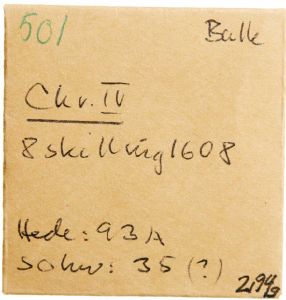 501 Balle
Chr. IV
8 skilling 1608
Hede: 93A
Schw: 35 (?)
2,94g